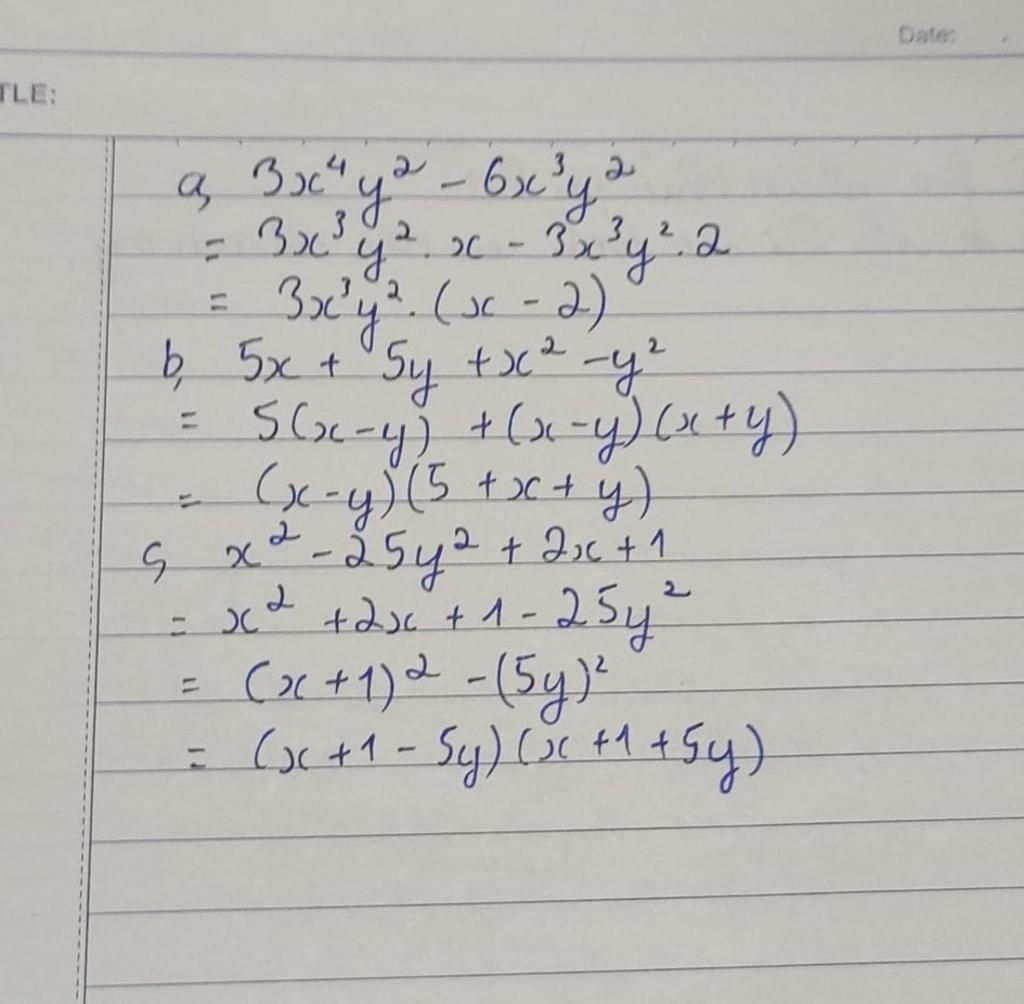 Date:
TLE:
a, 3x⁴y² - 6x³y²
= 3x³y² . x - 3x³y² . 2
= 3x³y² . (x - 2)
b, 5x + 5y + x² - y²
= 5(x - y) + (x - y)(x + y)
= (x - y)(5 + x + y)
c, x² - 25y² + 2x + 1
= x² + 2x + 1 - 25y²
= (x + 1)² - (5y)²
= (x + 1 - 5y)(x + 1 + 5y)